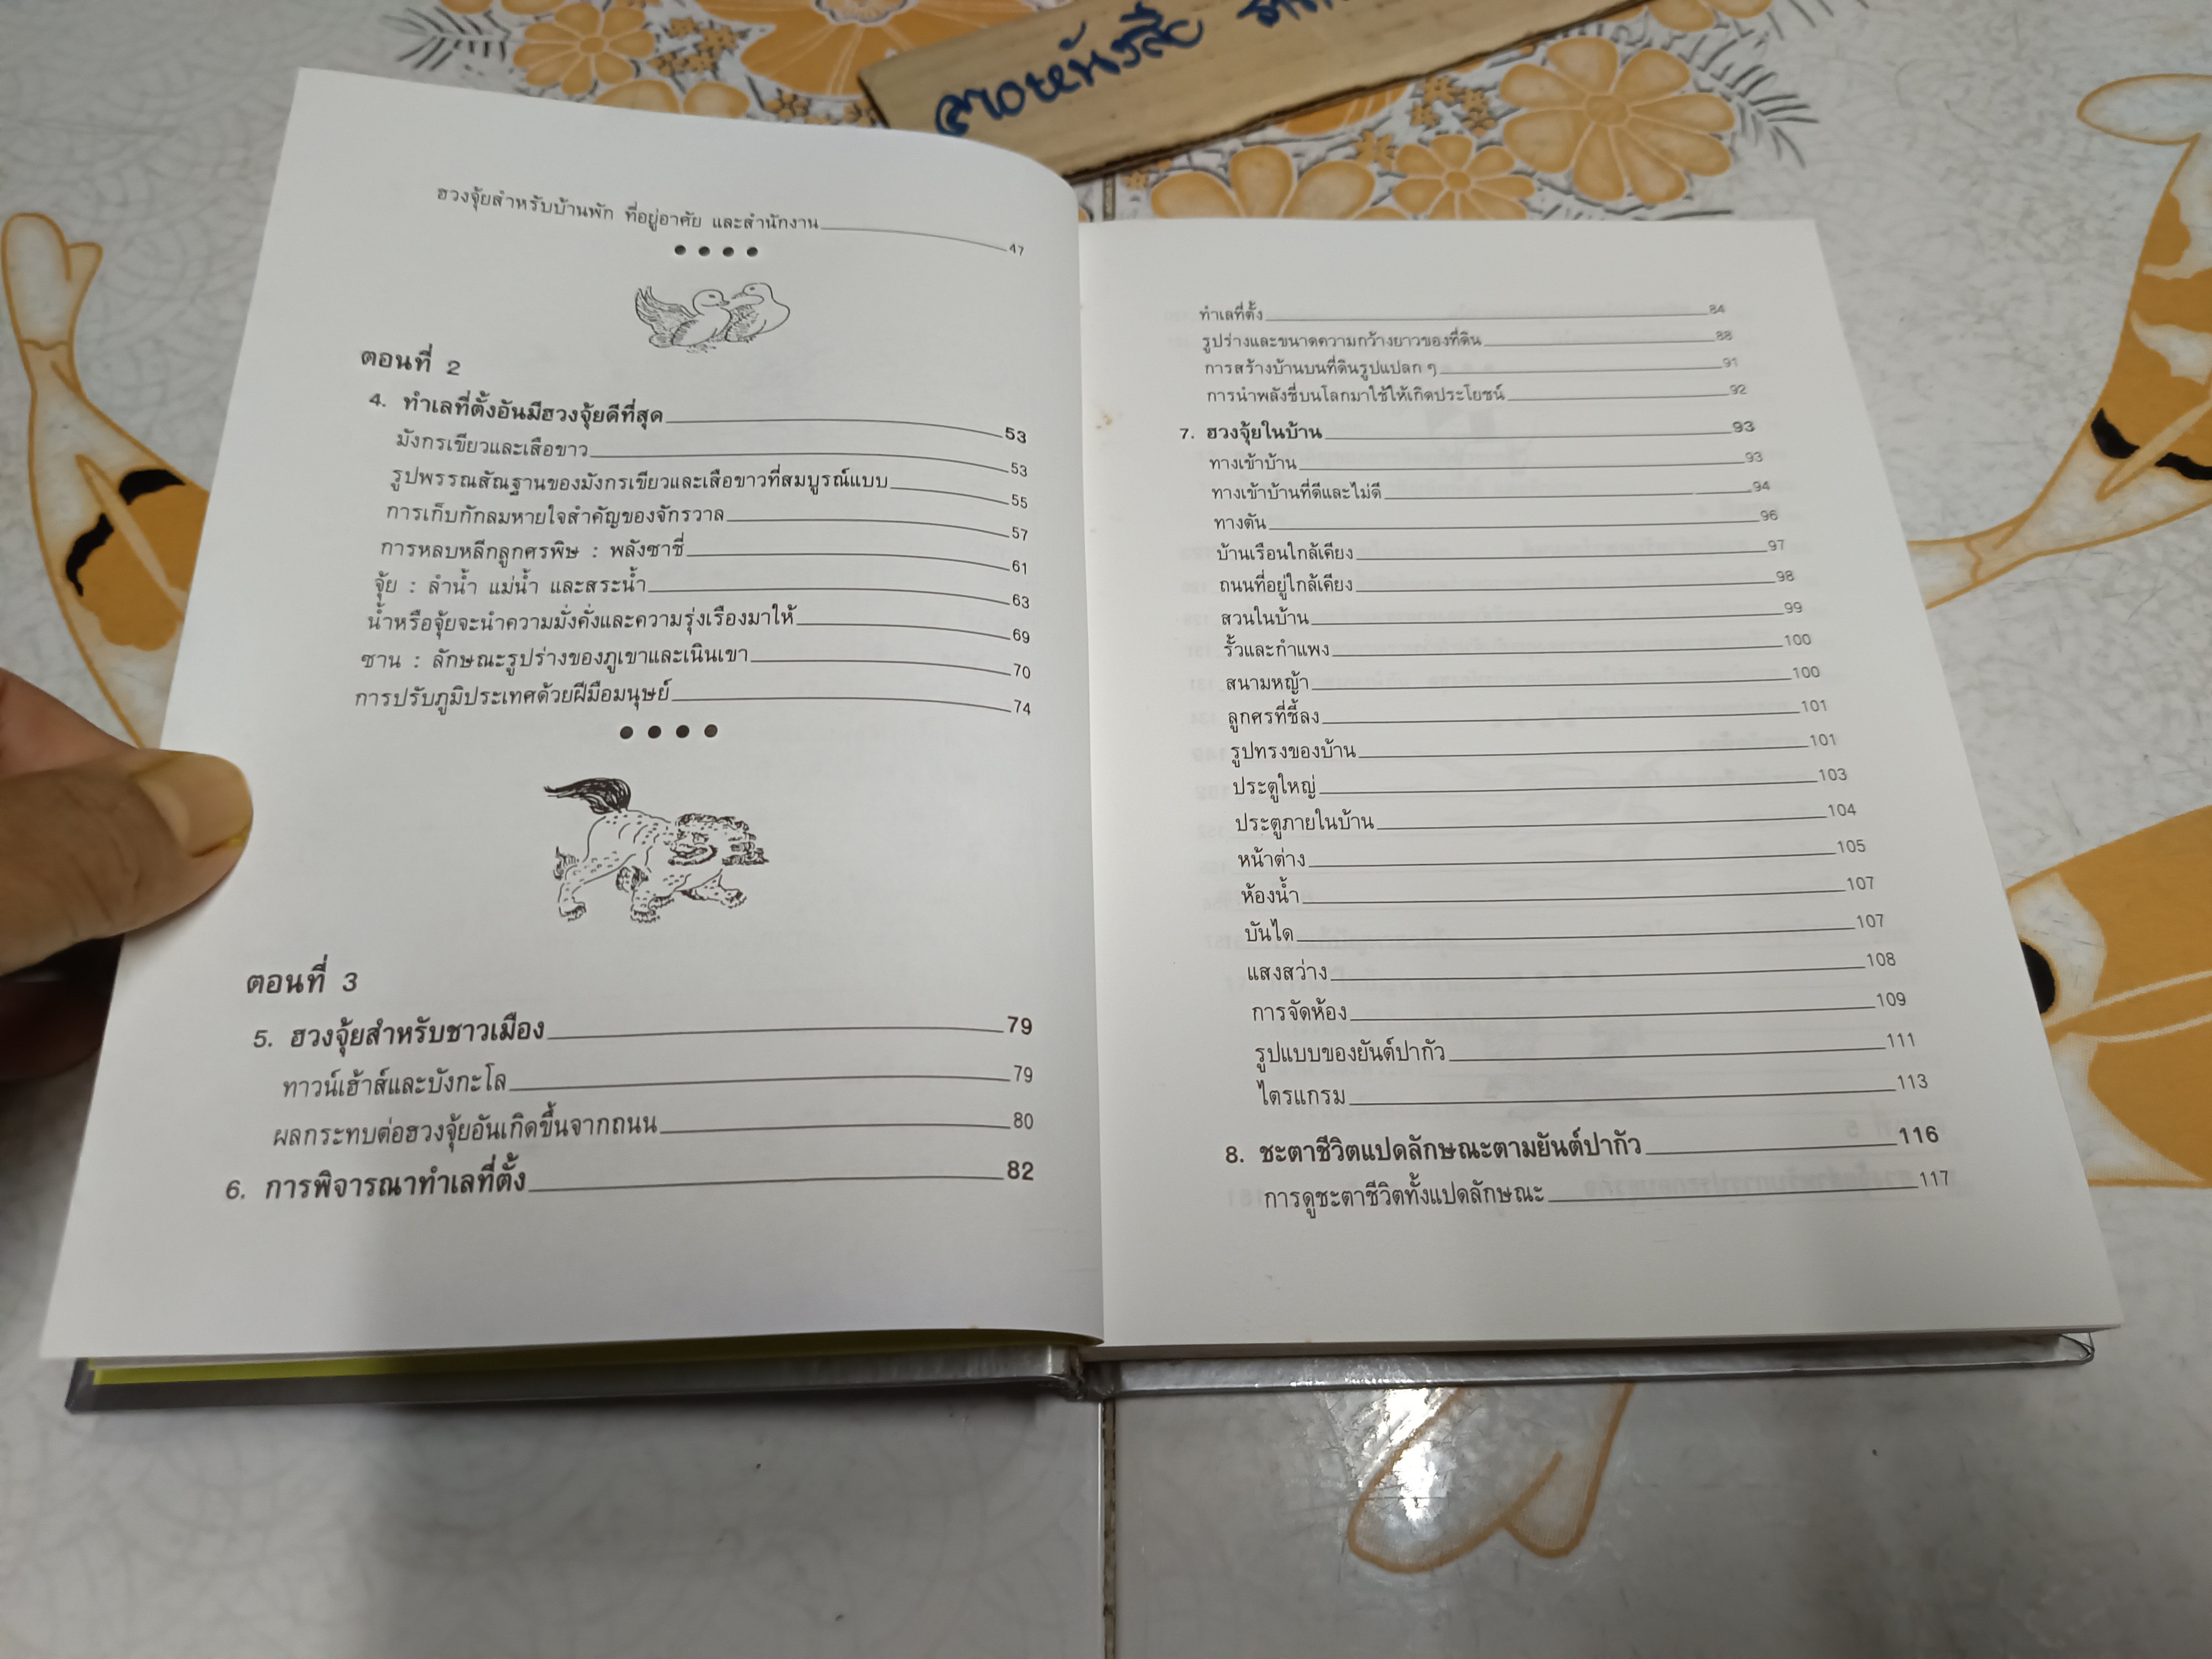 ฮวงจุ้ยสำหรับบ้านพัก ที่อยู่อาศัย และสำนักงาน 47
ตอนที่ 2
4. ทำเลที่ตั้งอันมีฮวงจุ้ยดีที่สุด 53
มังกรเขียวและเสือขาว 53
รูปพรรณสัณฐานของมังกรเขียวและเสือขาวที่สมบูรณ์แบบ 55
การเก็บกักลมหายใจสำคัญของจักรวาล 57
การหลบหลีกลูกศรพิษ : พลังซาชี่ 61
จุ้ย : ลำน้ำ แม่น้ำ และสระน้ำ 63
น้ำหรือจุ้ยจะนำความมั่งคั่งและความรุ่งเรืองมาให้ 69
ซาน : ลักษณะรูปร่างของภูเขาและเนินเขา 70
การปรับภูมิประเทศด้วยฝีมือมนุษย์ 74
ตอนที่ 3
5. ฮวงจุ้ยสำหรับชาวเมือง 79
ทาวน์เฮ้าส์และบังกะโล 79
ผลกระทบต่อฮวงจุ้ยอันเกิดขึ้นจากถนน 80
6. การพิจารณาทำเลที่ตั้ง 82
ทำเลที่ตั้ง 84
รูปร่างและขนาดความกว้างยาวของที่ดิน 88
การสร้างบ้านบนที่ดินรูปแปลก ๆ 91
การนำพลังชี่บนโลกมาใช้ให้เกิดประโยชน์ 92
7. ฮวงจุ้ยในบ้าน 93
ทางเข้าบ้าน 93
ทางเข้าบ้านที่ดีและไม่ดี 94
ทางตัน 96
บ้านเรือนใกล้เคียง 97
ถนนที่อยู่ใกล้เคียง 98
สวนในบ้าน 99
รั้วและกำแพง 100
สนามหญ้า 100
ลูกศรที่ชี้ลง 101
รูปทรงของบ้าน 101
ประตูใหญ่ 103
ประตูภายในบ้าน 104
หน้าต่าง 105
ห้องน้ำ 107
บันได 107
แสงสว่าง 108
การจัดห้อง 109
รูปแบบของยันต์ปากัว 111
ไตรแกรม 113
8. ชะตาชีวิตแปดลักษณะตามยันต์ปากัว 116
การดูชะตาชีวิตทั้งแปดลักษณะ 117